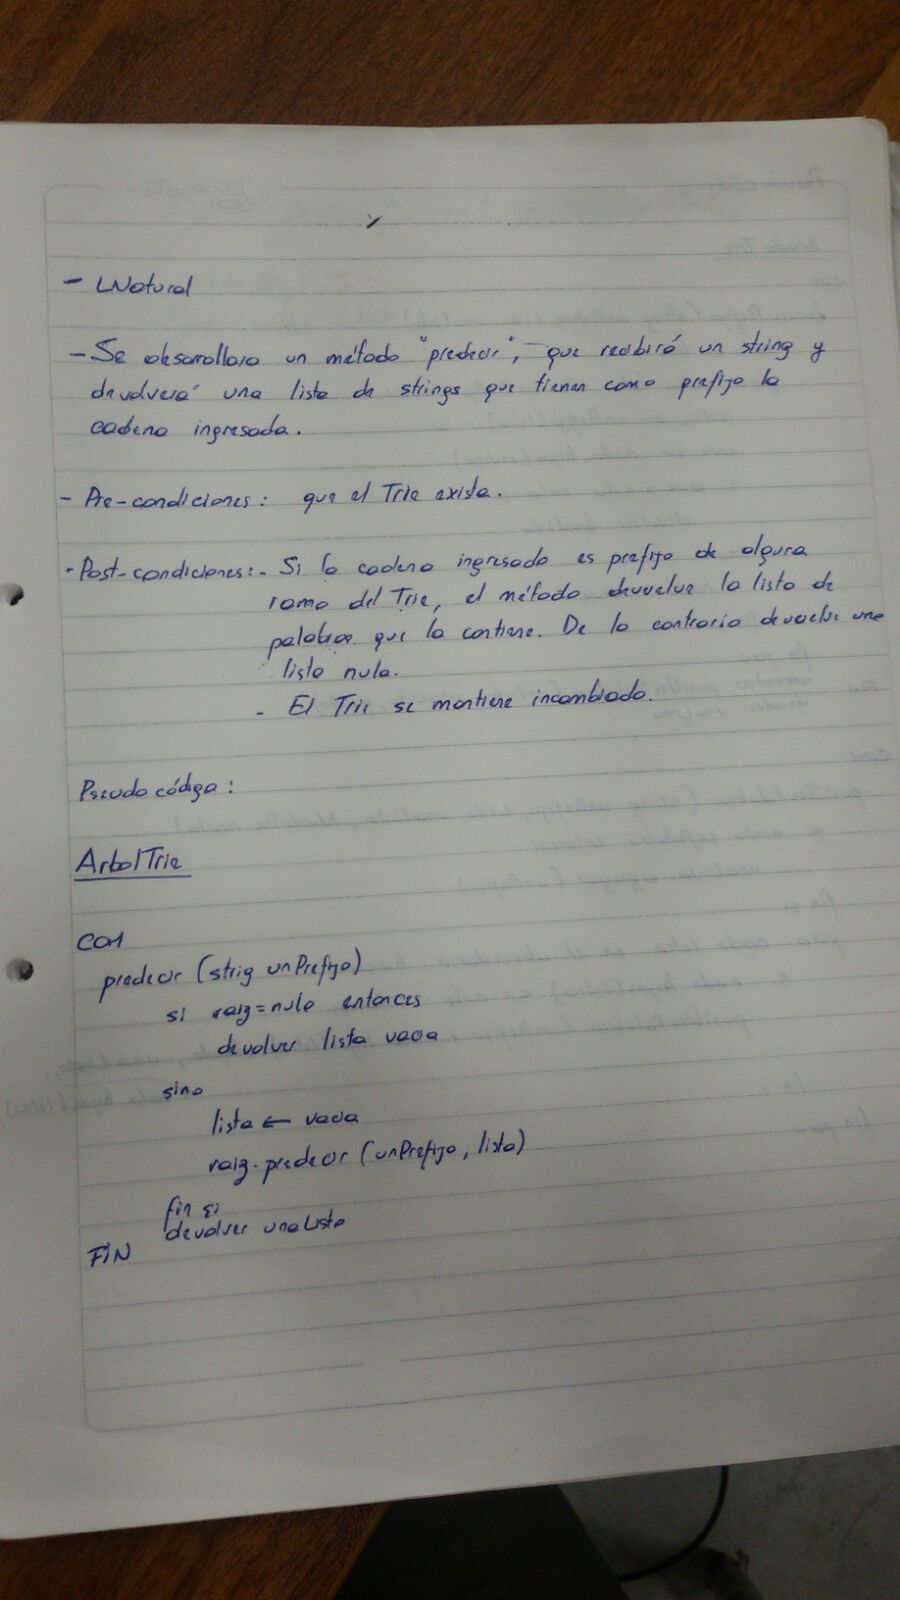 - LNatural
- Se desarrollara un método "predecir", que recibirá un string y
devolverá una lista de strings que tienen como prefijo la
cadena ingresada.
- Pre-condiciones: que el Trie exista.
- Post-condiciones: - Si la cadena ingresada es prefijo de alguna
rama del Trie, el método devuelve la lista de
palabras que la contiene. De lo contrario devuelve una
lista nula.
- El Trie se mantiene incambiado.
Pseudo código:
ArbolTrie
COM
predecir (strig unPrefijo)
si raiz = nulo entonces
devolver lista vacia
sino
lista ← vacia
raiz.predecir (unPrefijo, lista)
fin si
devolver unaLista
FIN